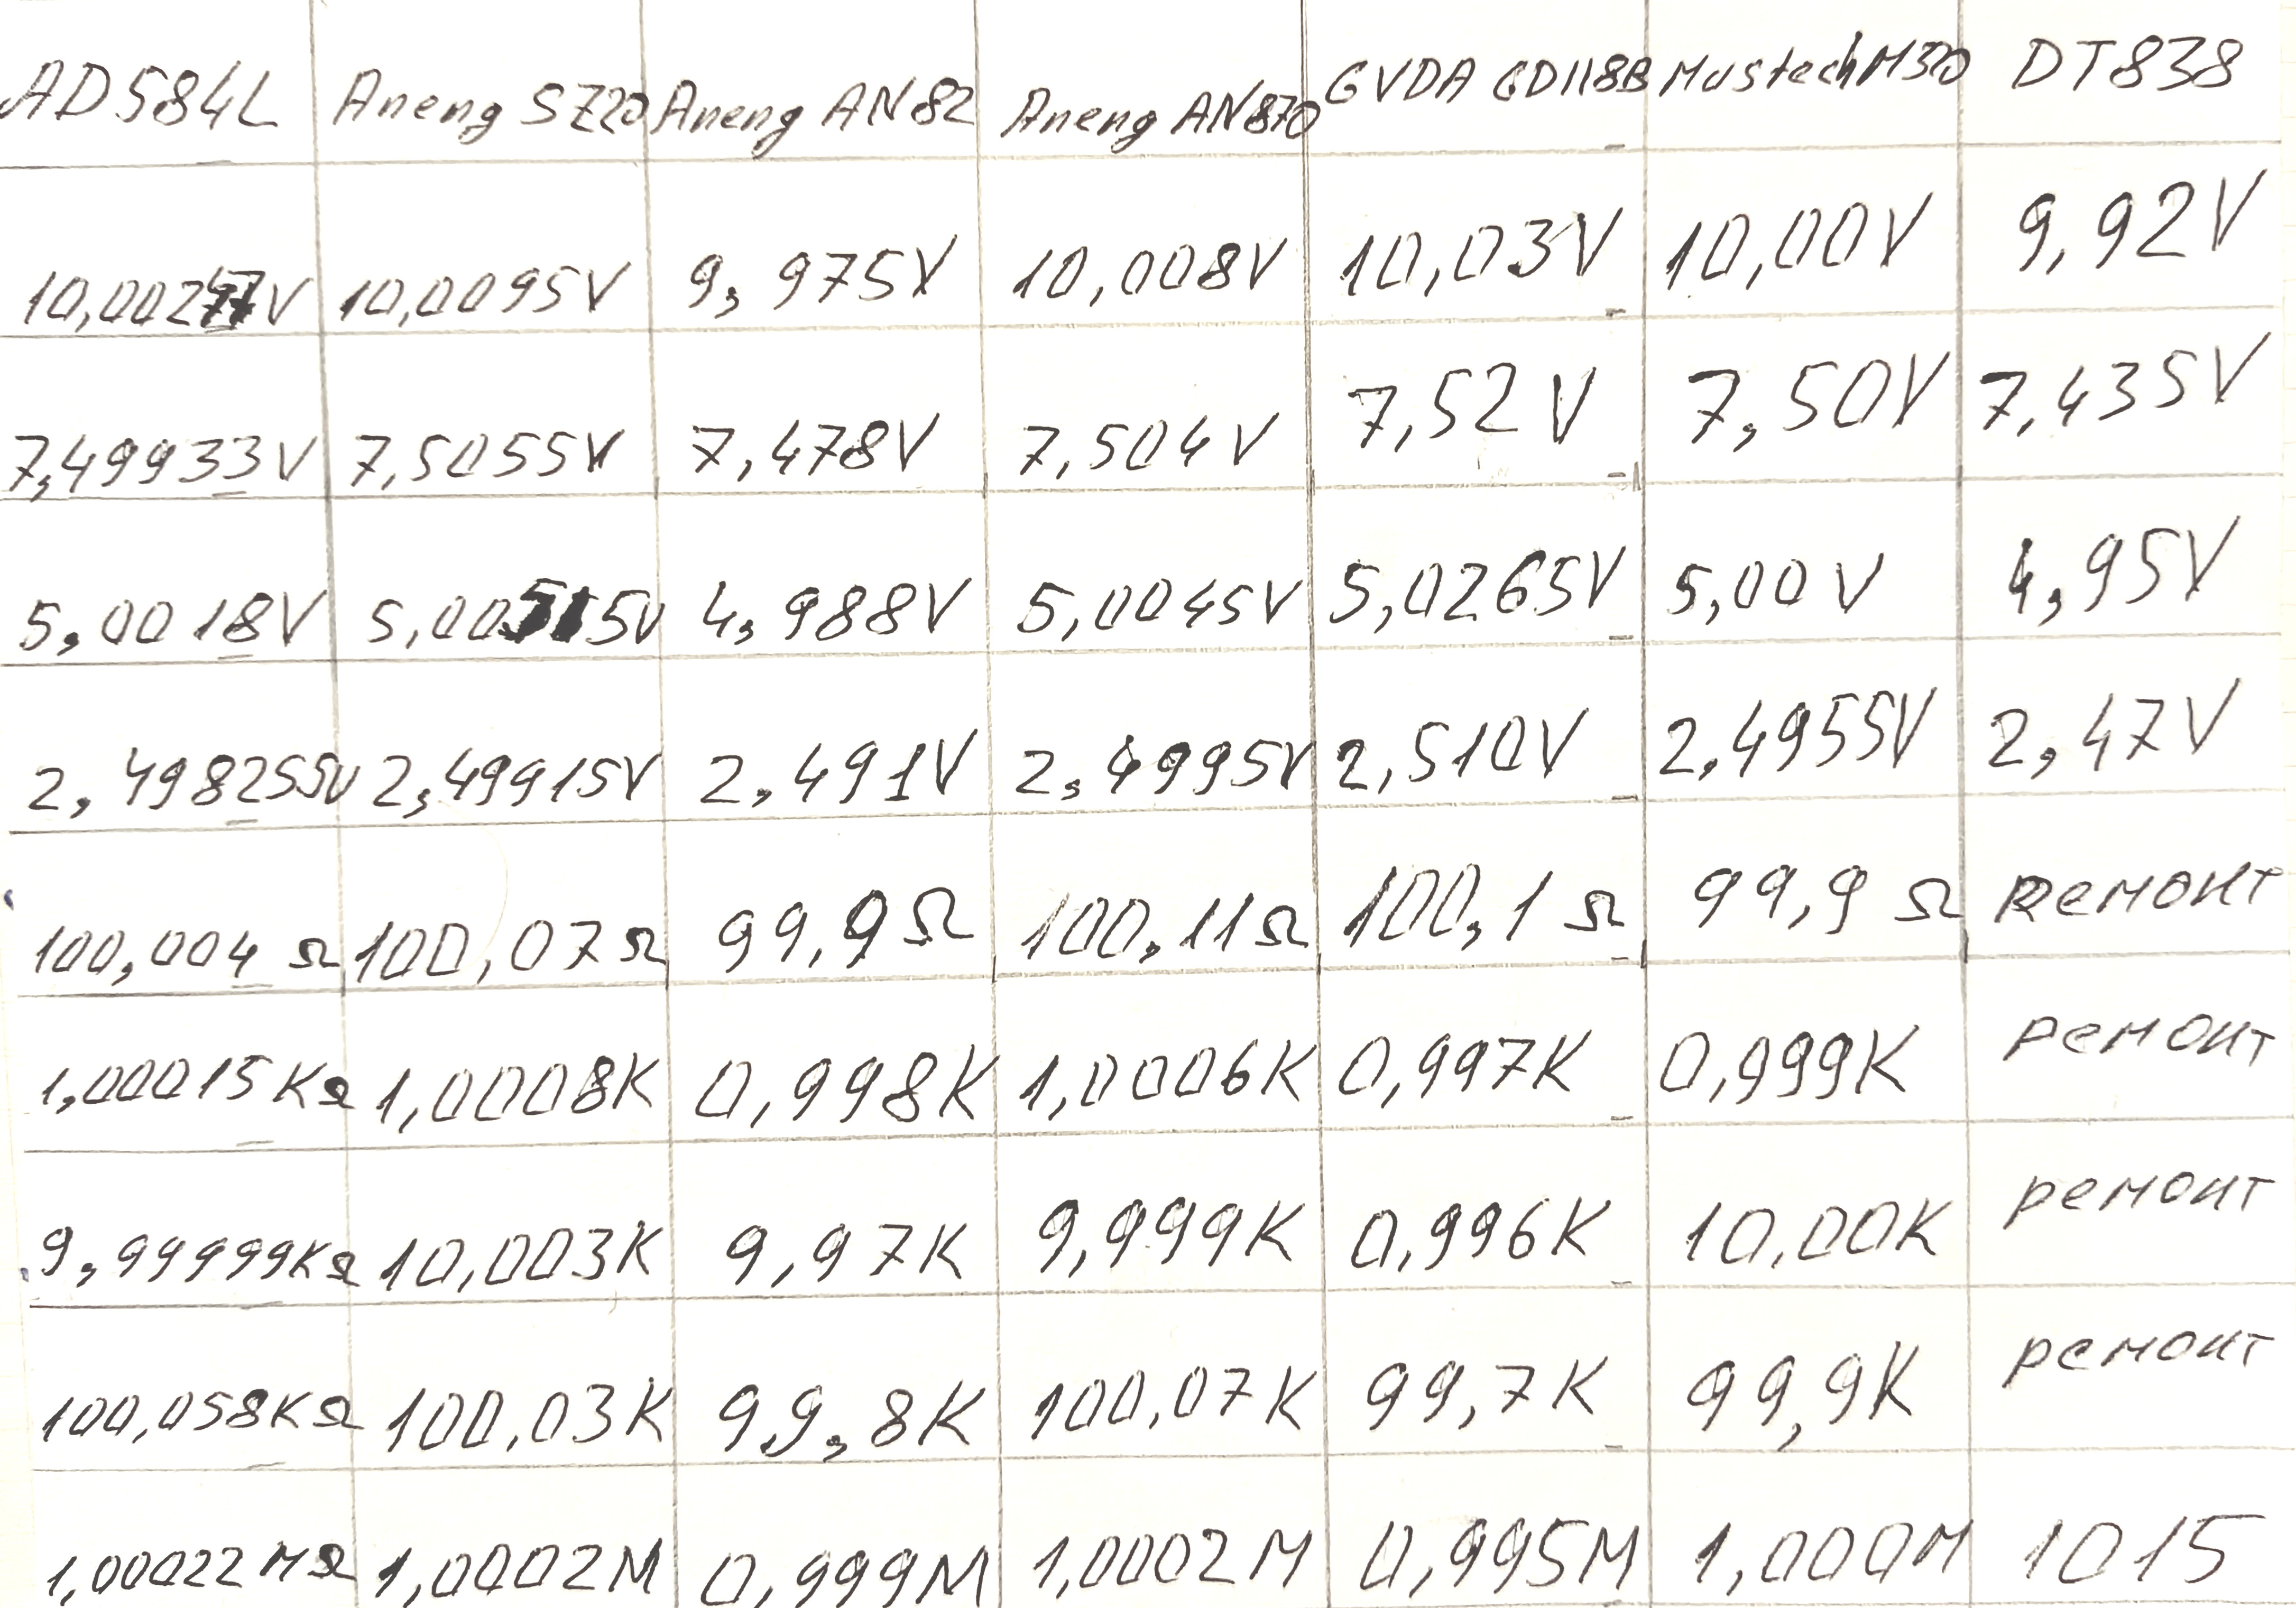 AD584L Aneng SZ20 Aneng AN82 Aneng AN870 GVDA GD118B Mustech M320 DT838
10,00247V 10,0095V 9,975V 10,008V 10,03V 10,00V 9,92V
7,49933V 7,5055V 7,478V 7,504V 7,52V 7,50V 7,435V
5,0018V 5,00515V 4,988V 5,0045V 5,0265V 5,00V 4,95V
2,498255V 2,49915V 2,491V 2,4995V 2,510V 2,4955V 2,47V
100,004 Ω 100,07Ω 99,9Ω 100,11Ω 100,1Ω 99,9Ω ремонт
1,00015KΩ 1,0008K 0,998K 1,0006K 0,997K 0,999K ремонт
9,99999KΩ 10,003K 9,97K 9,999K 0,996K 10,00K ремонт
100,058KΩ 100,03K 99,8K 100,07K 99,7K 99,9K ремонт
1,00022MΩ 1,0002M 0,999M 1,0002M 0,995M 1,000M 1015